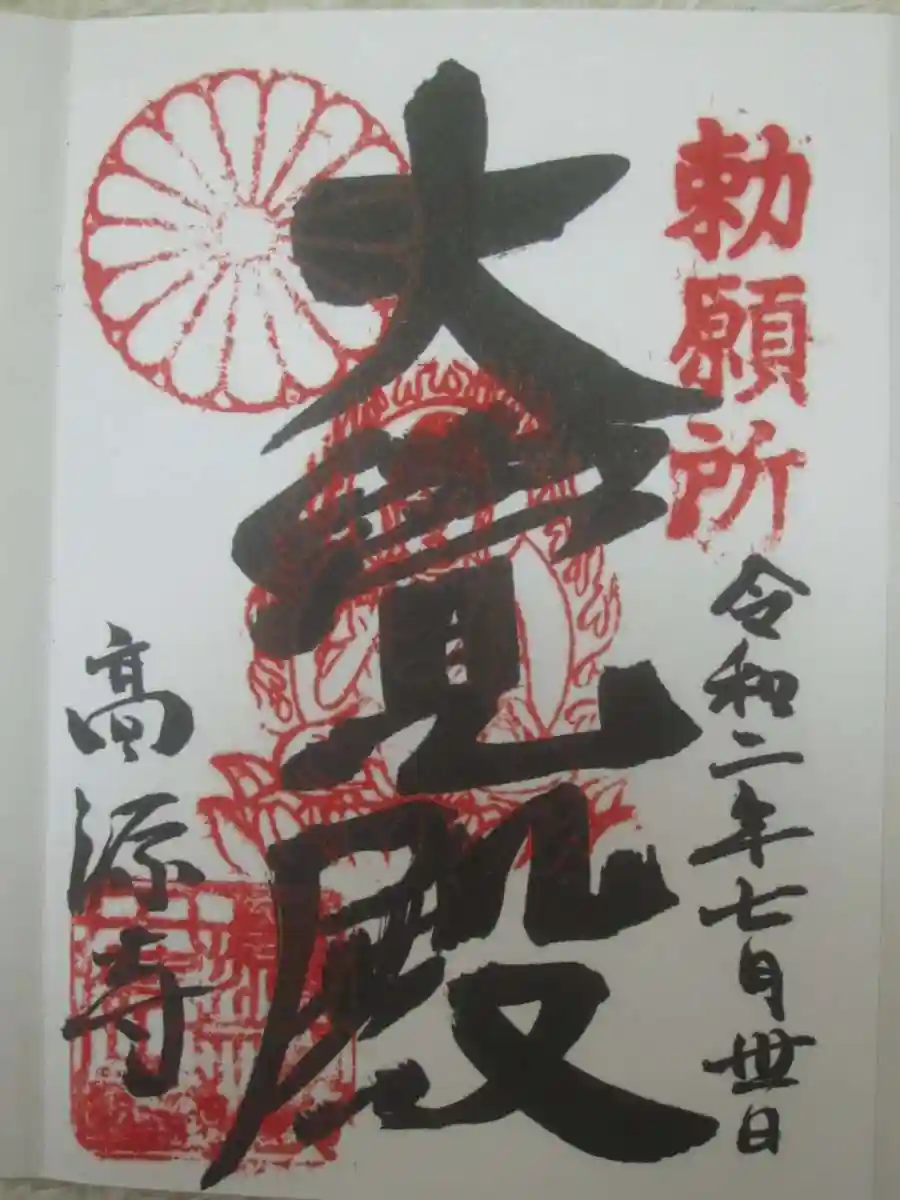 勅願所
令和二年七月丗日
大覚殿
高源寺